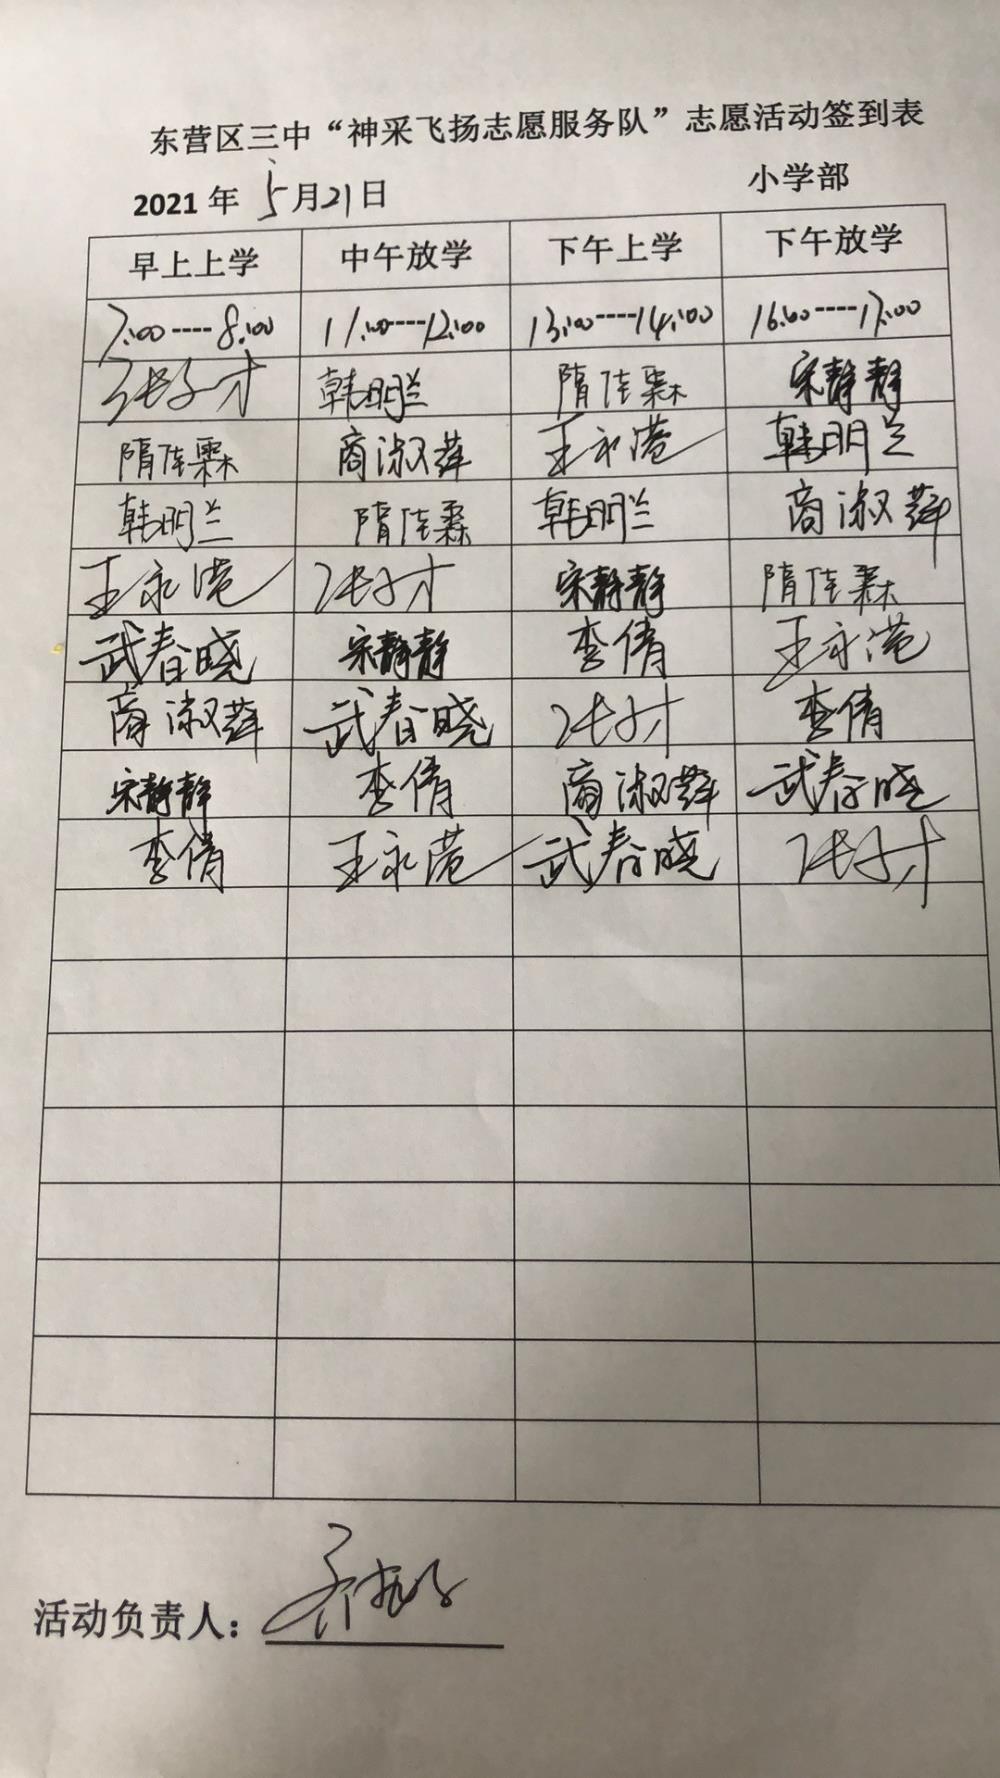 东营区三中“神采飞扬志愿服务队”志愿活动签到表
2021 年 5月21日 小学部
早上上学 中午放学 下午上学 下午放学
7:00----8:00 11:00----12:00 13:00----14:00 16:00----17:00
张子才 韩明兰 隋佳霖 宋静静
隋佳霖 商淑萍 王永港 韩明兰
韩明兰 隋佳霖 韩明兰 商淑萍
王永港 张子才 宋静静 隋佳霖
武春晓 宋静静 李倩 王永港
商淑萍 武春晓 张子才 李倩
宋静静 李倩 商淑萍 武春晓
李倩 王永港 武春晓 张子才
活动负责人：